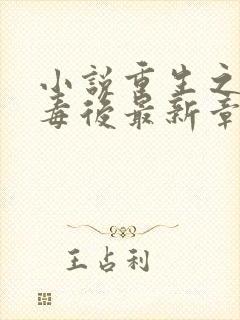 小説重生之
毒後最新章
王占利